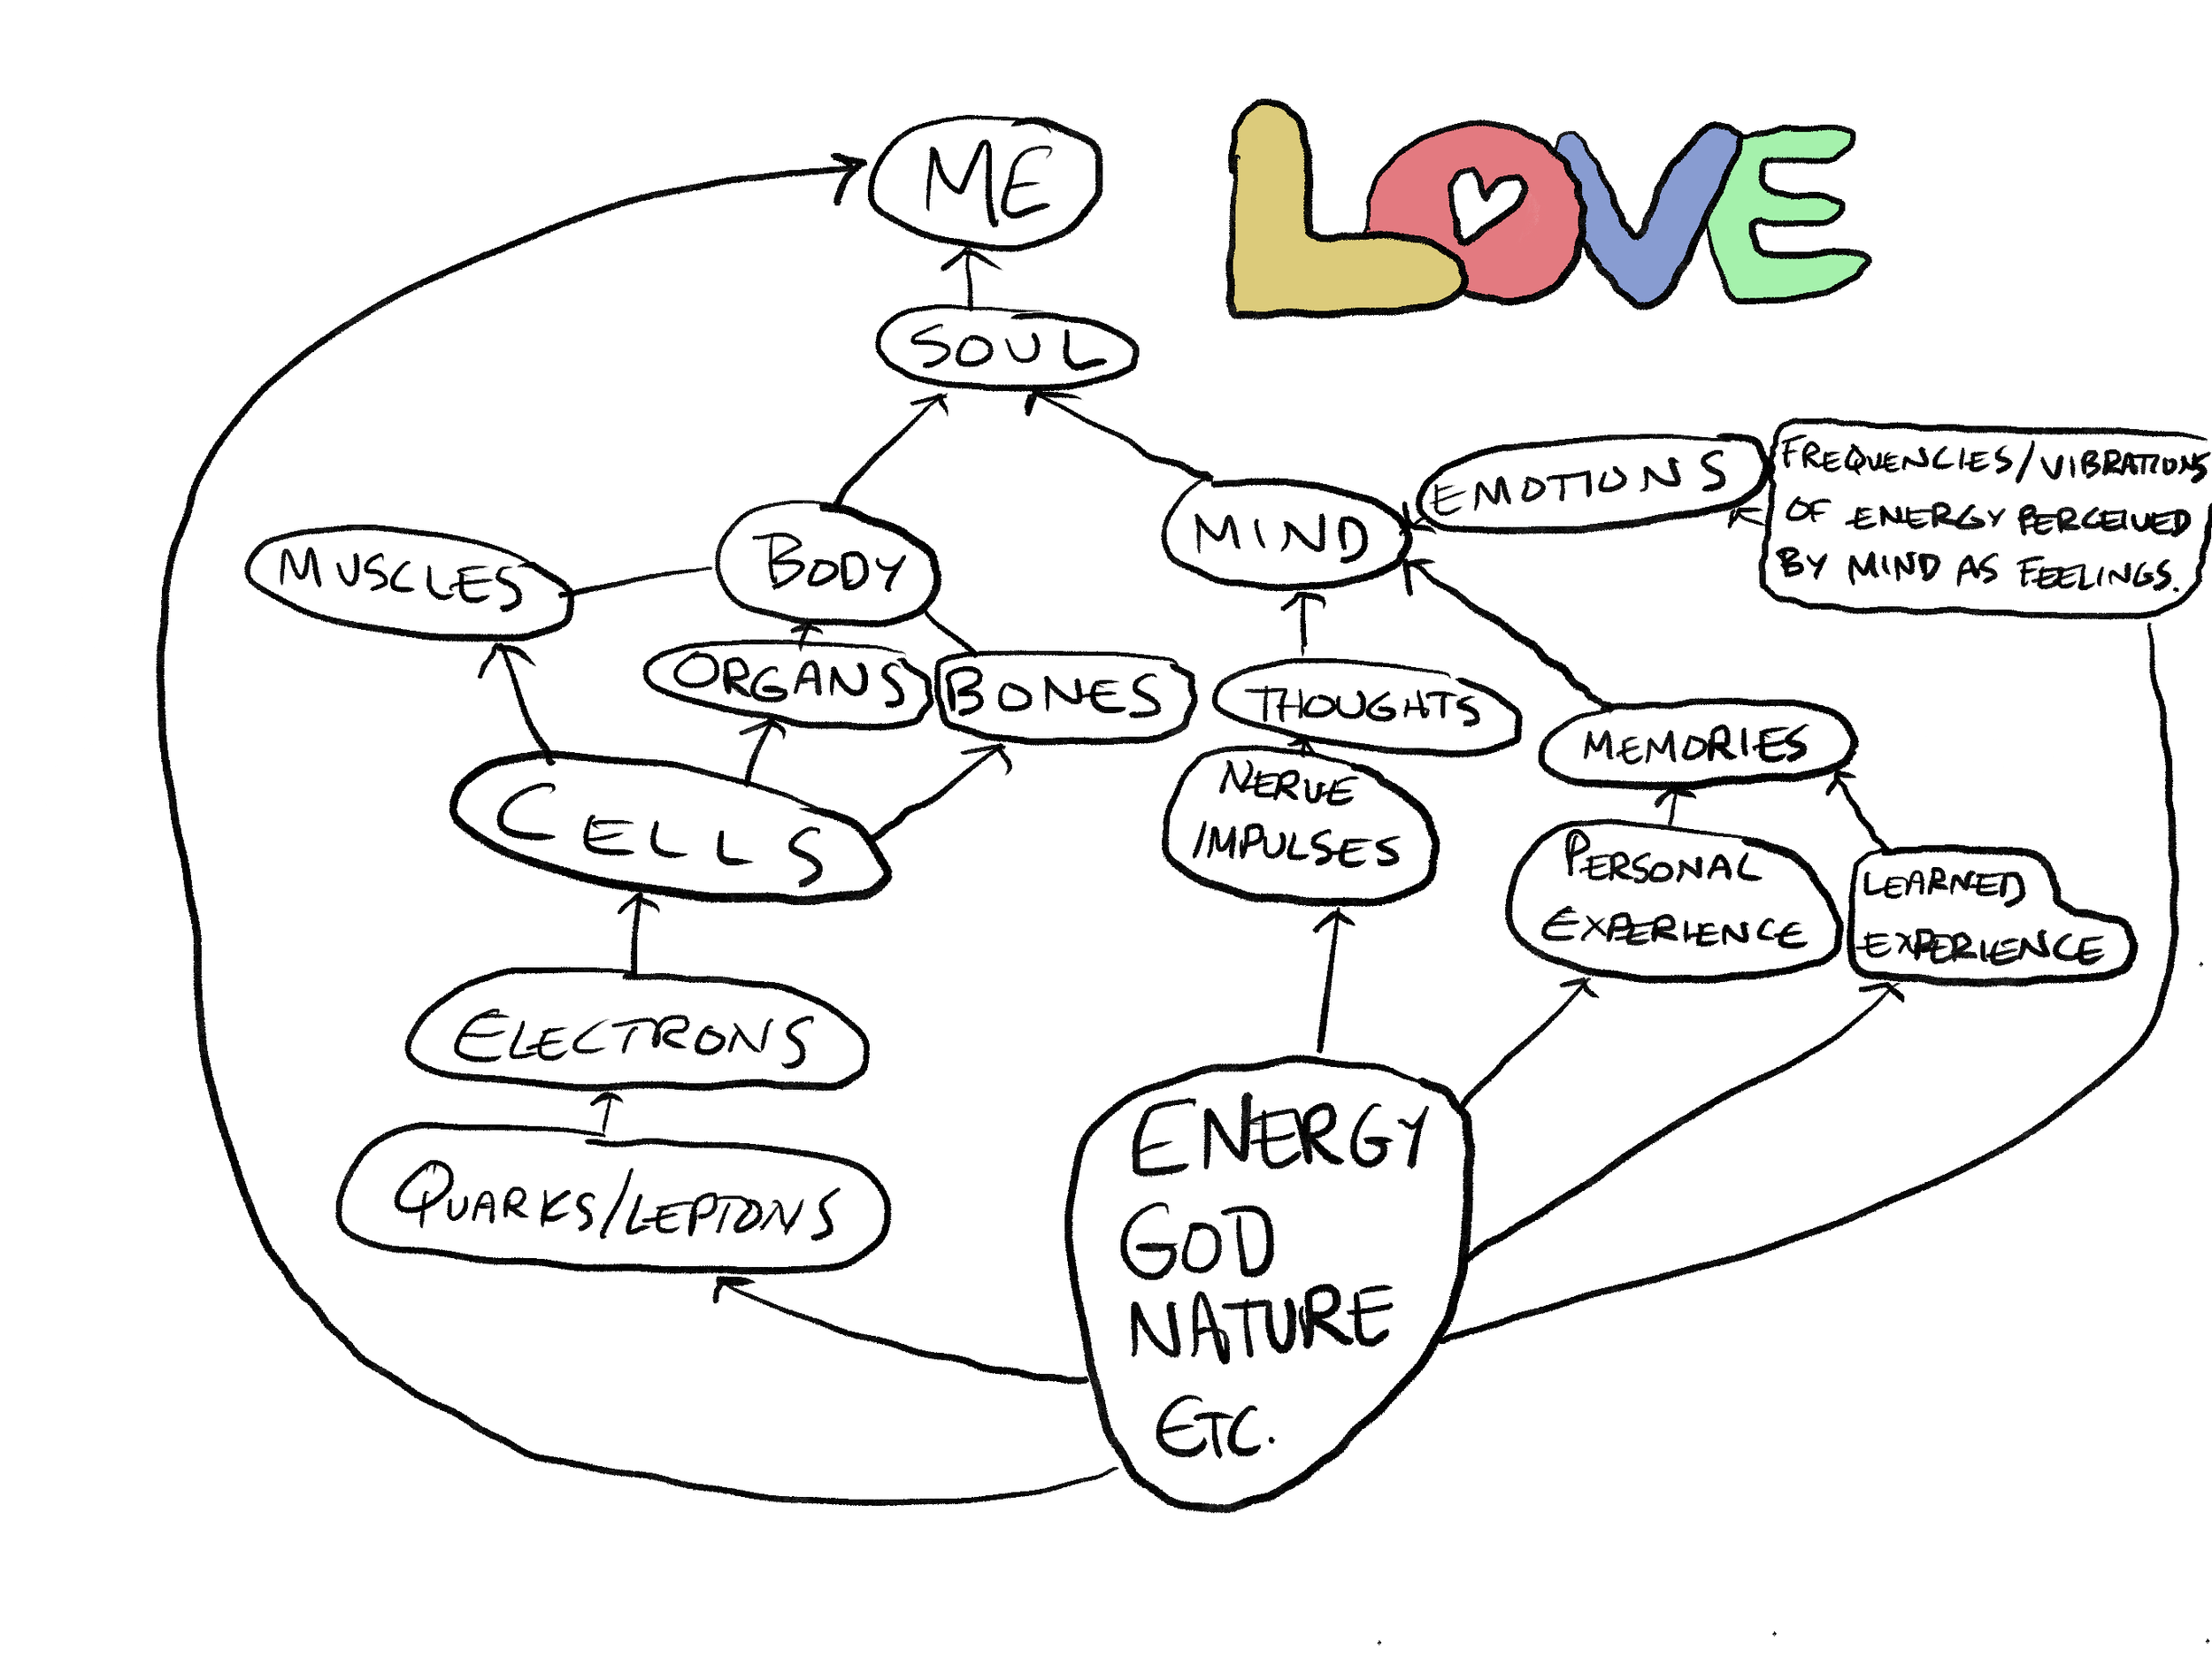 ME
LOVE
SOUL
EMOTIONS
FREQUENCIES/VIBRATIONS
OF ENERGY PERCEIVED
BY MIND AS FEELINGS.
MUSCLES
BODY
MIND
ORGANS
BONES
THOUGHTS
MEMORIES
CELLS
NERVE
IMPULSES
PERSONAL
EXPERIENCE
LEARNED
EXPERIENCE
ELECTRONS
QUARKS/LEPTONS
ENERGY
GOD
NATURE
ETC.